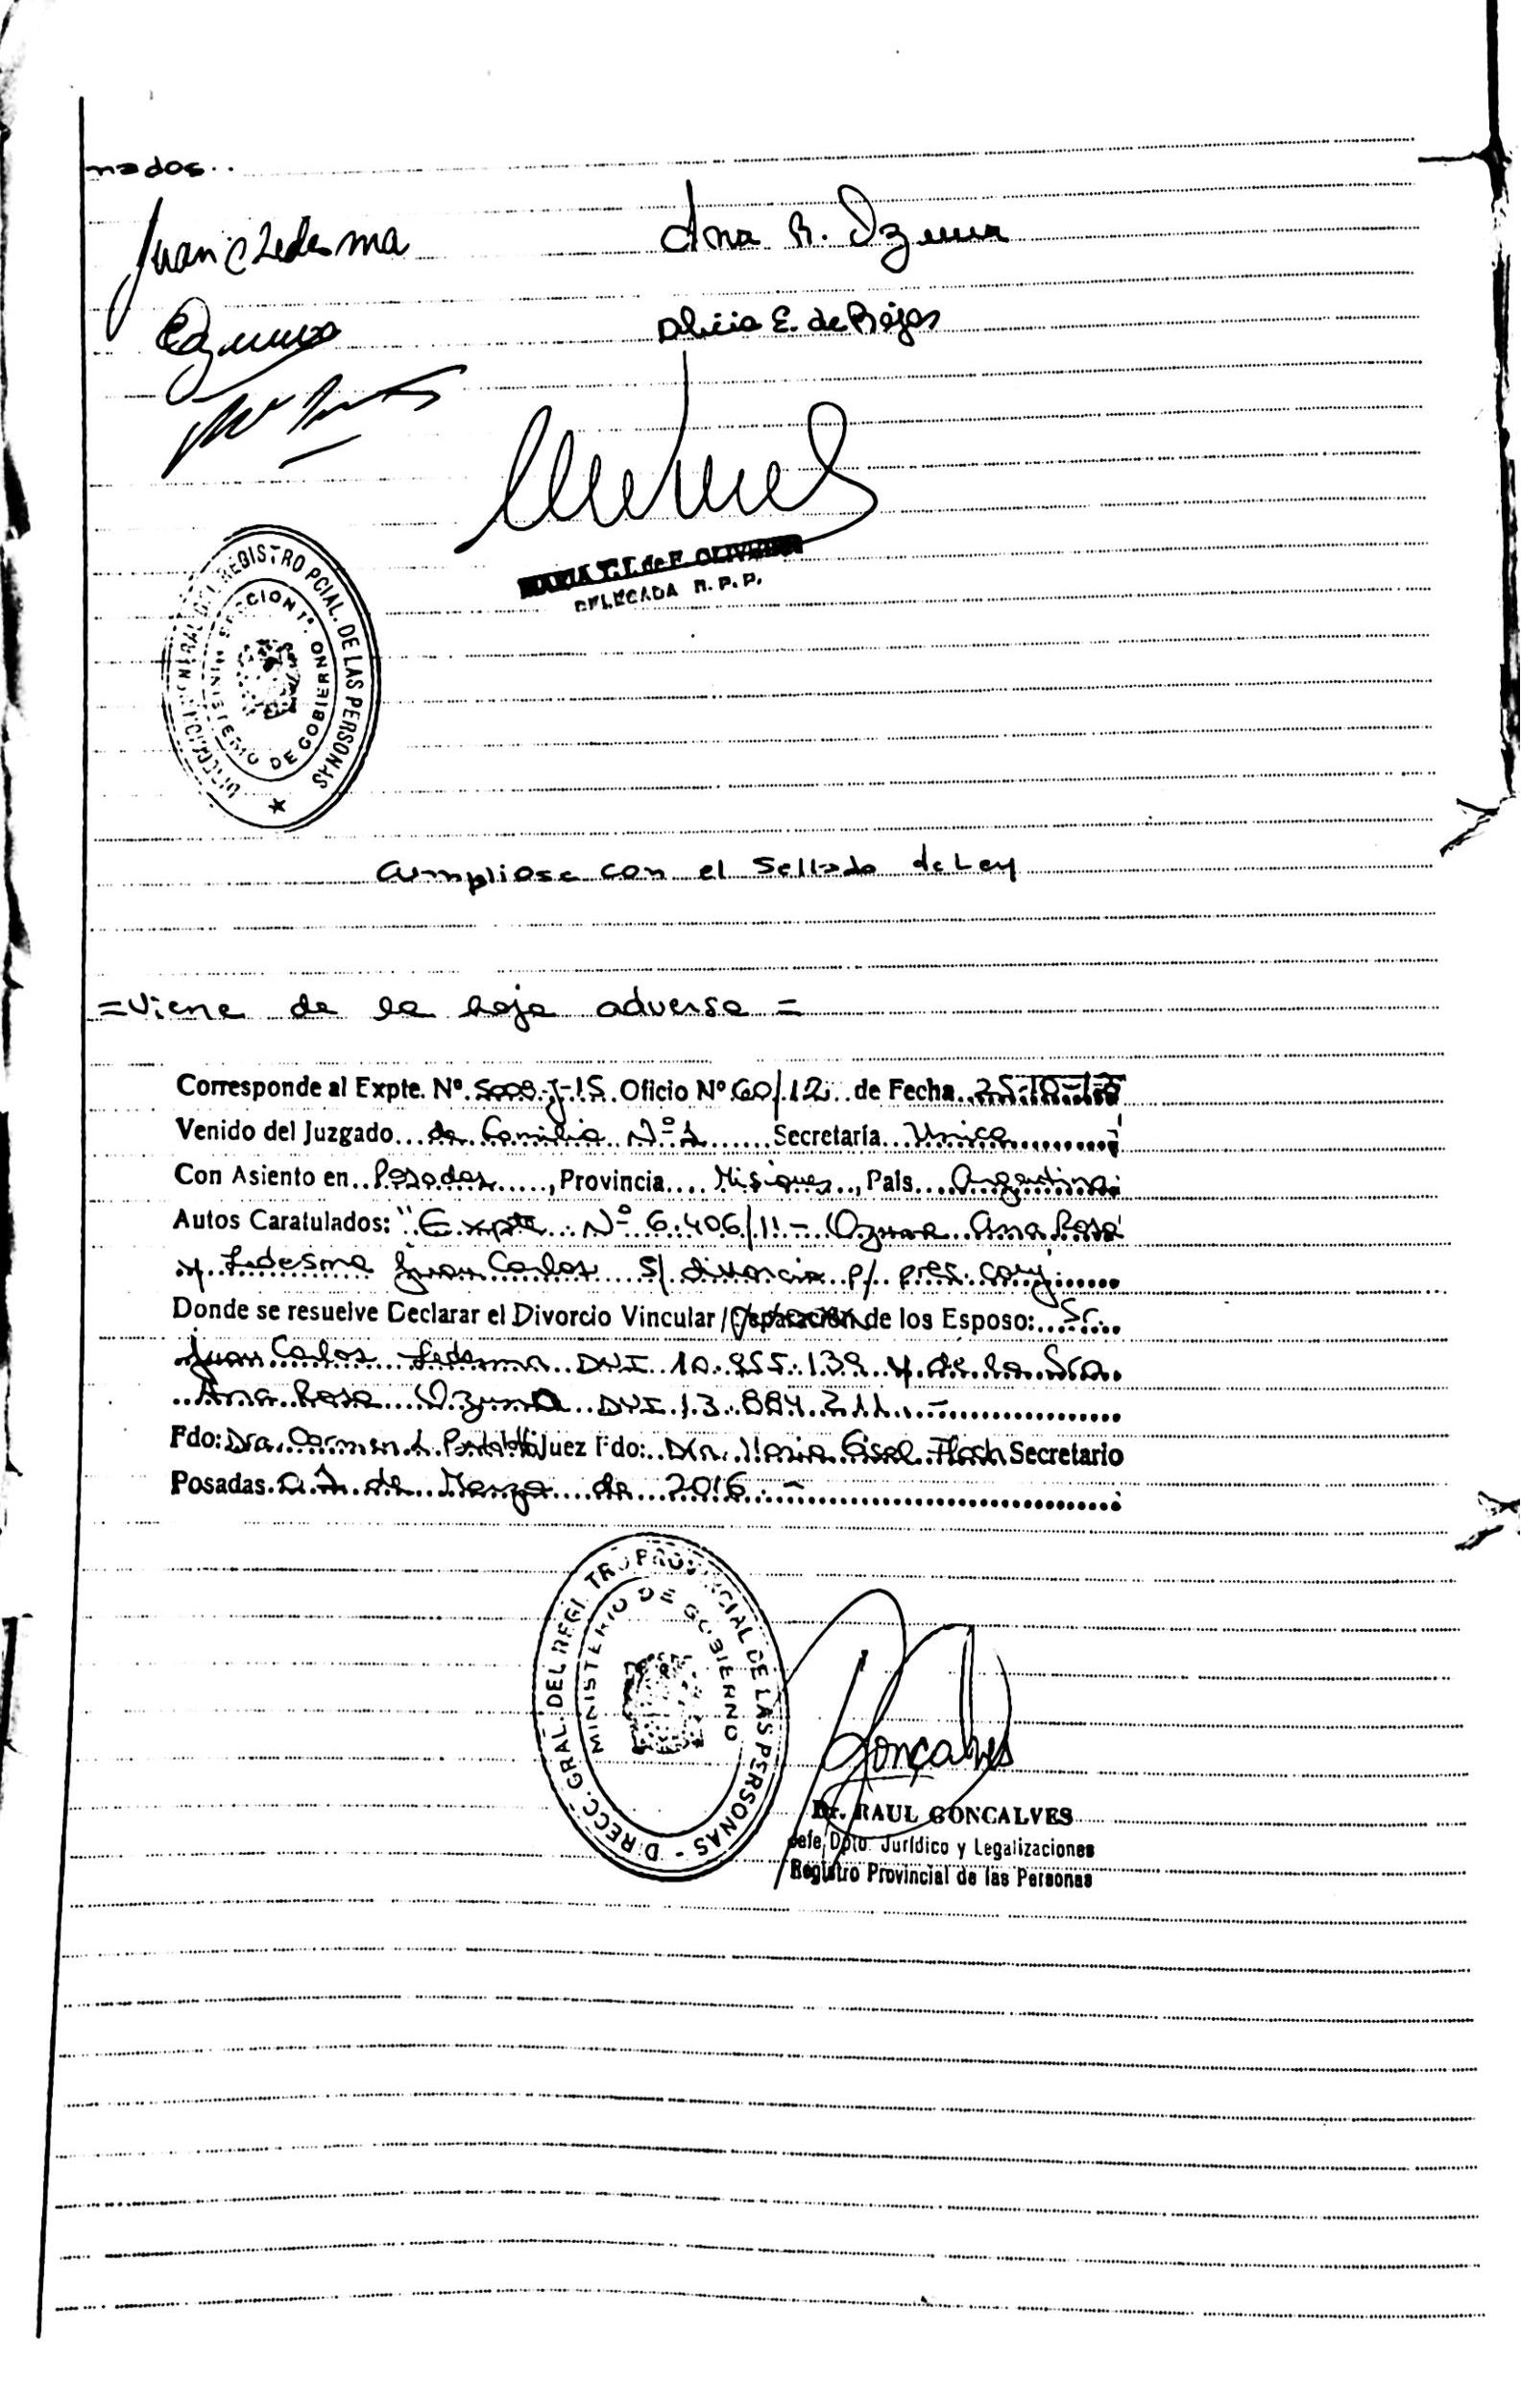 nados..
Juan C Ledesma
Ana R. Ozuna
Ozuna
Alicia E. de Rojas
MARIA T. I. de F. OLIVEIRA
DELEGADA R.P.P.
REGISTRO PCIAL. DE LAS PERSONAS
MINISTERIO DE GOBIERNO
Cumpliose con el Sellado de Ley
=Viene de la hoja adversa =
Corresponde al Expte. Nº 5008-J-15 Oficio Nº 60/12 de Fecha
Venido del Juzgado de Familia Nº 1 Secretaría Unica
Con Asiento en Posadas, Provincia Misiones, País Argentina
Autos Caratulados: "Expte. Nº 6.406/11 - Ozuna Ana Rosa
y Ledesma Juan Carlos S/ divorcio p/ pres. conj.
Donde se resuelve Declarar el Divorcio Vincular / Separación de los Esposo: Sr.
Juan Carlos Ledesma DNI 10.955.139 y de la Sra.
Ana Rosa Ozuna DNI 13.884.211.-
Fdo: Dra. Carmen L. Juez Fdo: Dra. Maria Gisel Secretario
Posadas. de Marzo de 2016.-
DIRECC. GRAL. DEL REGISTRO PROVINCIAL DE LAS PERSONAS -
MINISTERIO DE GOBIERNO
Goncalves
Dr. RAUL GONCALVES
Jefe Dpto. Jurídico y Legalizaciones
Registro Provincial de las Personas